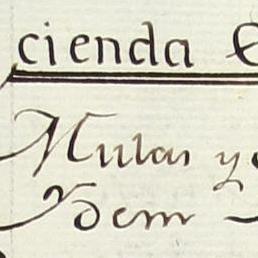 cienda
Mulas y
Ydem